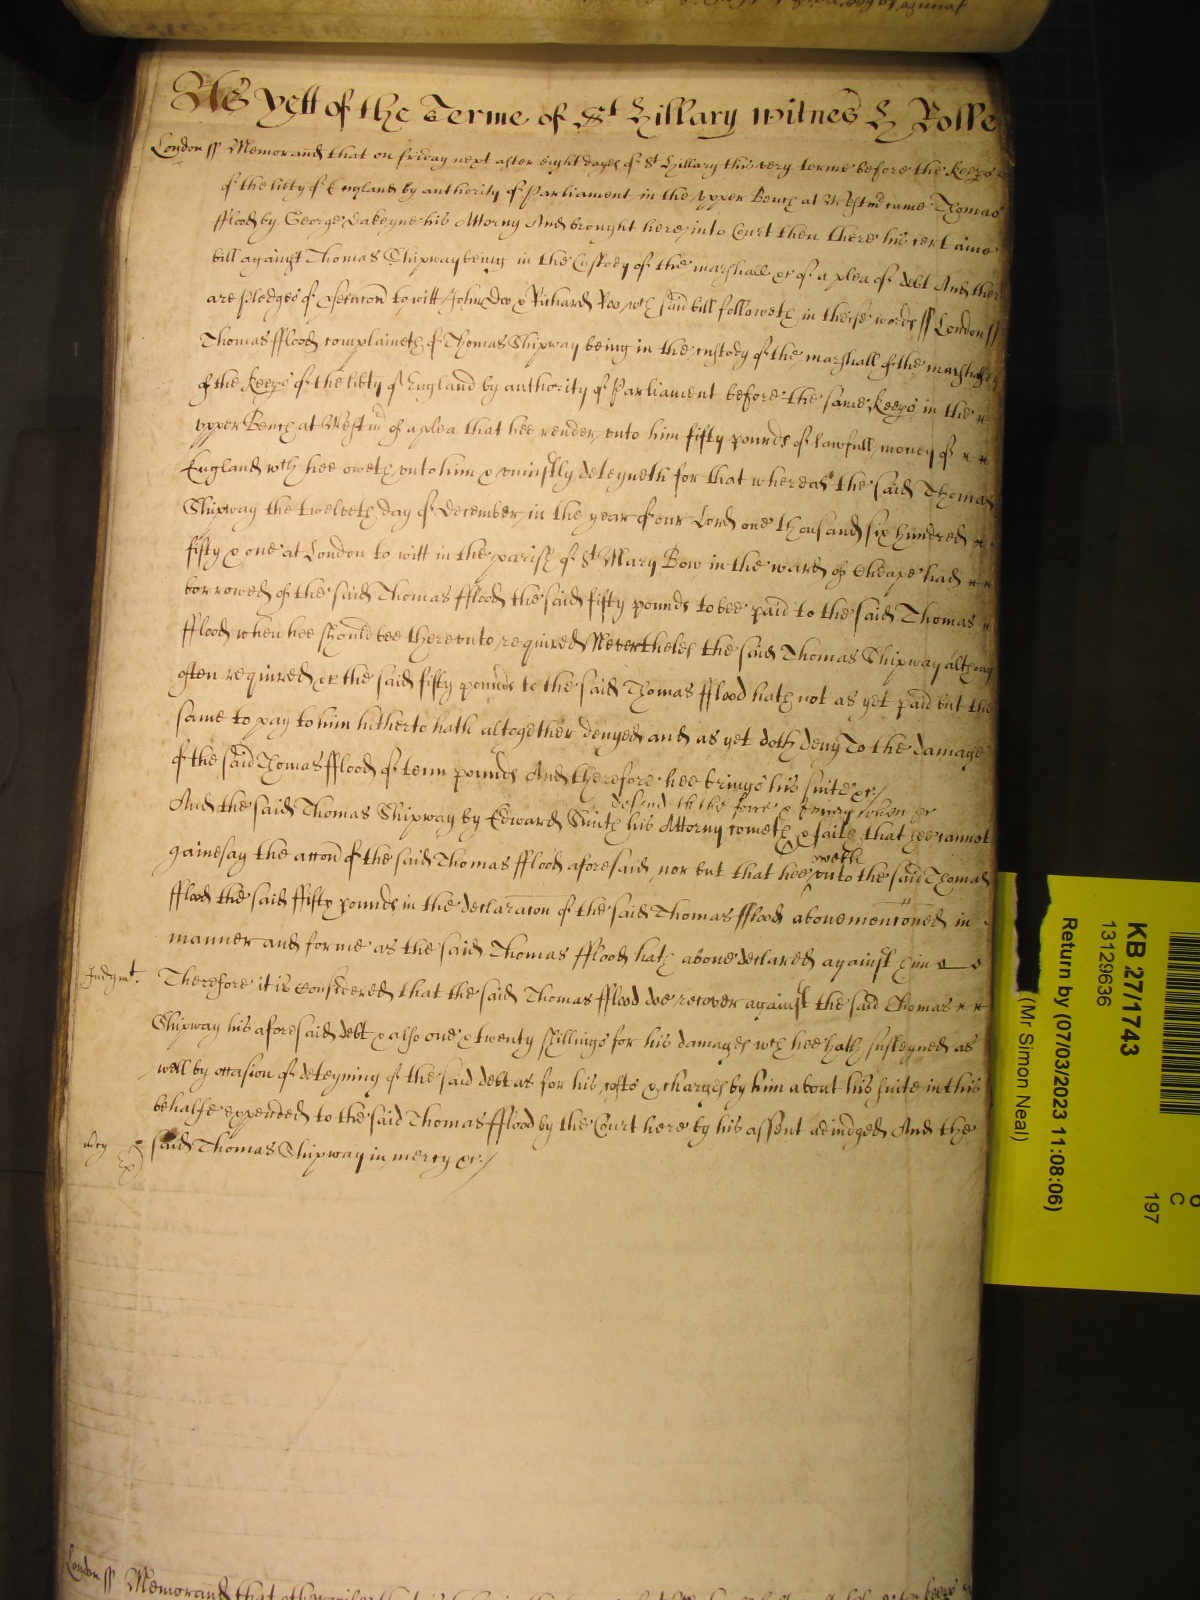 As yett of the Terme of St Hillary witnes H Rolle
London ss Memorand that on friday next after eight dayes of St Hillary this very terme before the keeps
of the libty of England by authority of Parliament in the upper Bench at Westmr came Thomas
fflood by George Dakeyne his Attorny And brought here into Court then there his certaine
bill against Thomas Shipway being in the Custody of the marshall &c of a plea of debt And ther
are pledges of psecucon to witt John Doo & Richard Roo wch said bill followeth in theise words ss London ss
Thomas fflood complaineth of Thomas Shipway being in the custody of the marshall of the marshalsey
of the keeps of the libty of England by authority of Parliament before the same keeps in the
upper Bench at Westmr of a plea that hee render unto him fifty pounds of lawfull money of
England wch hee oweth unto him & uniustly deteyneth for that whereas the said Thomas
Shipway the twelveth day of December in the year of our Lord one thousand six hundred
fifty & one at London to witt in the parish of St Mary Bow in the ward of Cheape had
borrowed of the said Thomas fflood the said fifty pounds to bee paid to the said Thomas
fflood when hee should bee thereunto required Nevertheles the said Thomas Shipway althoug
often required &c the said fifty pounds to the said Thomas fflood hath not as yet paid but the
same to pay to him hitherto hath altogether denyed and as yet doth deny To the damage
of the said Thomas fflood of tenn pounds And therefore hee brings his suite &c/
defendeth the force & iniury when &c
And the said Thomas Shipway by Edward Smith his Attorny cometh & saith that hee cannot
gainesay the accon of the said Thomas fflood aforesaid nor but that hee oweth unto the said Thomas
fflood the said ffifty pounds in the declaracon of the said Thomas fflood above menconed in
manner and forme as the said Thomas fflood hath above declared against him
Judgmt. Therefore it is considered that the said Thomas fflood doe recover against the said Thomas
Shipway his aforesaid debt & also one & twenty shillings for his damages wch hee hath susteyned as
well by occasion of deteyning of the said debt as for his costs & charges by him about his suite in this
behalfe expended to the said Thomas fflood by the Court here by his assent adiudged And the
mcy said Thomas Shipway in mercy &c/
London ss Memorand that
KB 27/1743
13129636
Return by (07/03/2023 11:08:06)
(Mr Simon Neal)
6
C
197